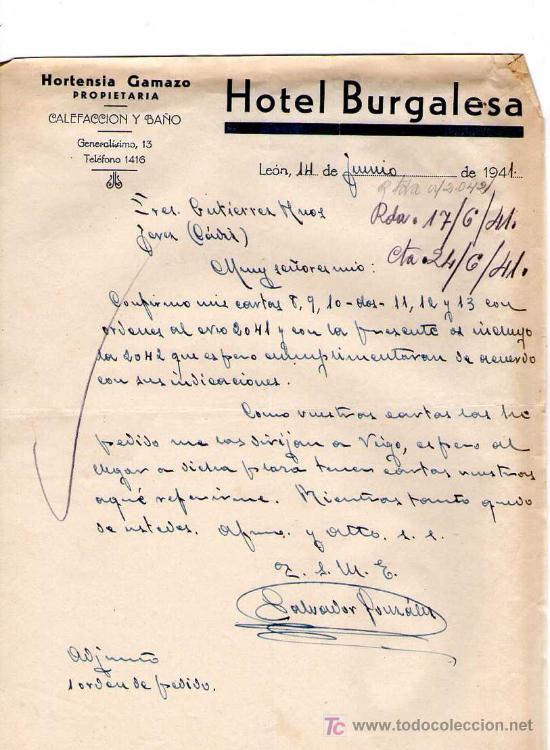 Hortensia Gamazo
PROPIETARIA
CALEFACCION Y BAÑO
Generalísimo, 13
Teléfono 1416
Hotel Burgalesa
León, 14 de junio de 1941.
Rda. 17/6/41.
Cta. 24/6/41.
Sres. Gutierrez Hnos
Jerez (Cádiz)
Muy señores mio:
Confirmo mis cartas 8, 9, 10-dos-11, 12 y 13 con
ordenes al nro 2041 y con la presente os incluyo
la 2042 que espero cumplimentaran de acuerdo
con sus indicaciones.
Como vuestras cartas las he
pedido me las dirijan a Vigo, espero al
llegar a dicha plaza tener cartas vuestras
a qué referirme. Mientras tanto quedo
de ustedes. Afmo. y Atto. s. s.
q. s. M. E.
Salvador González
Adjunto
1 orden de pedido.
TC www.todocoleccion.net